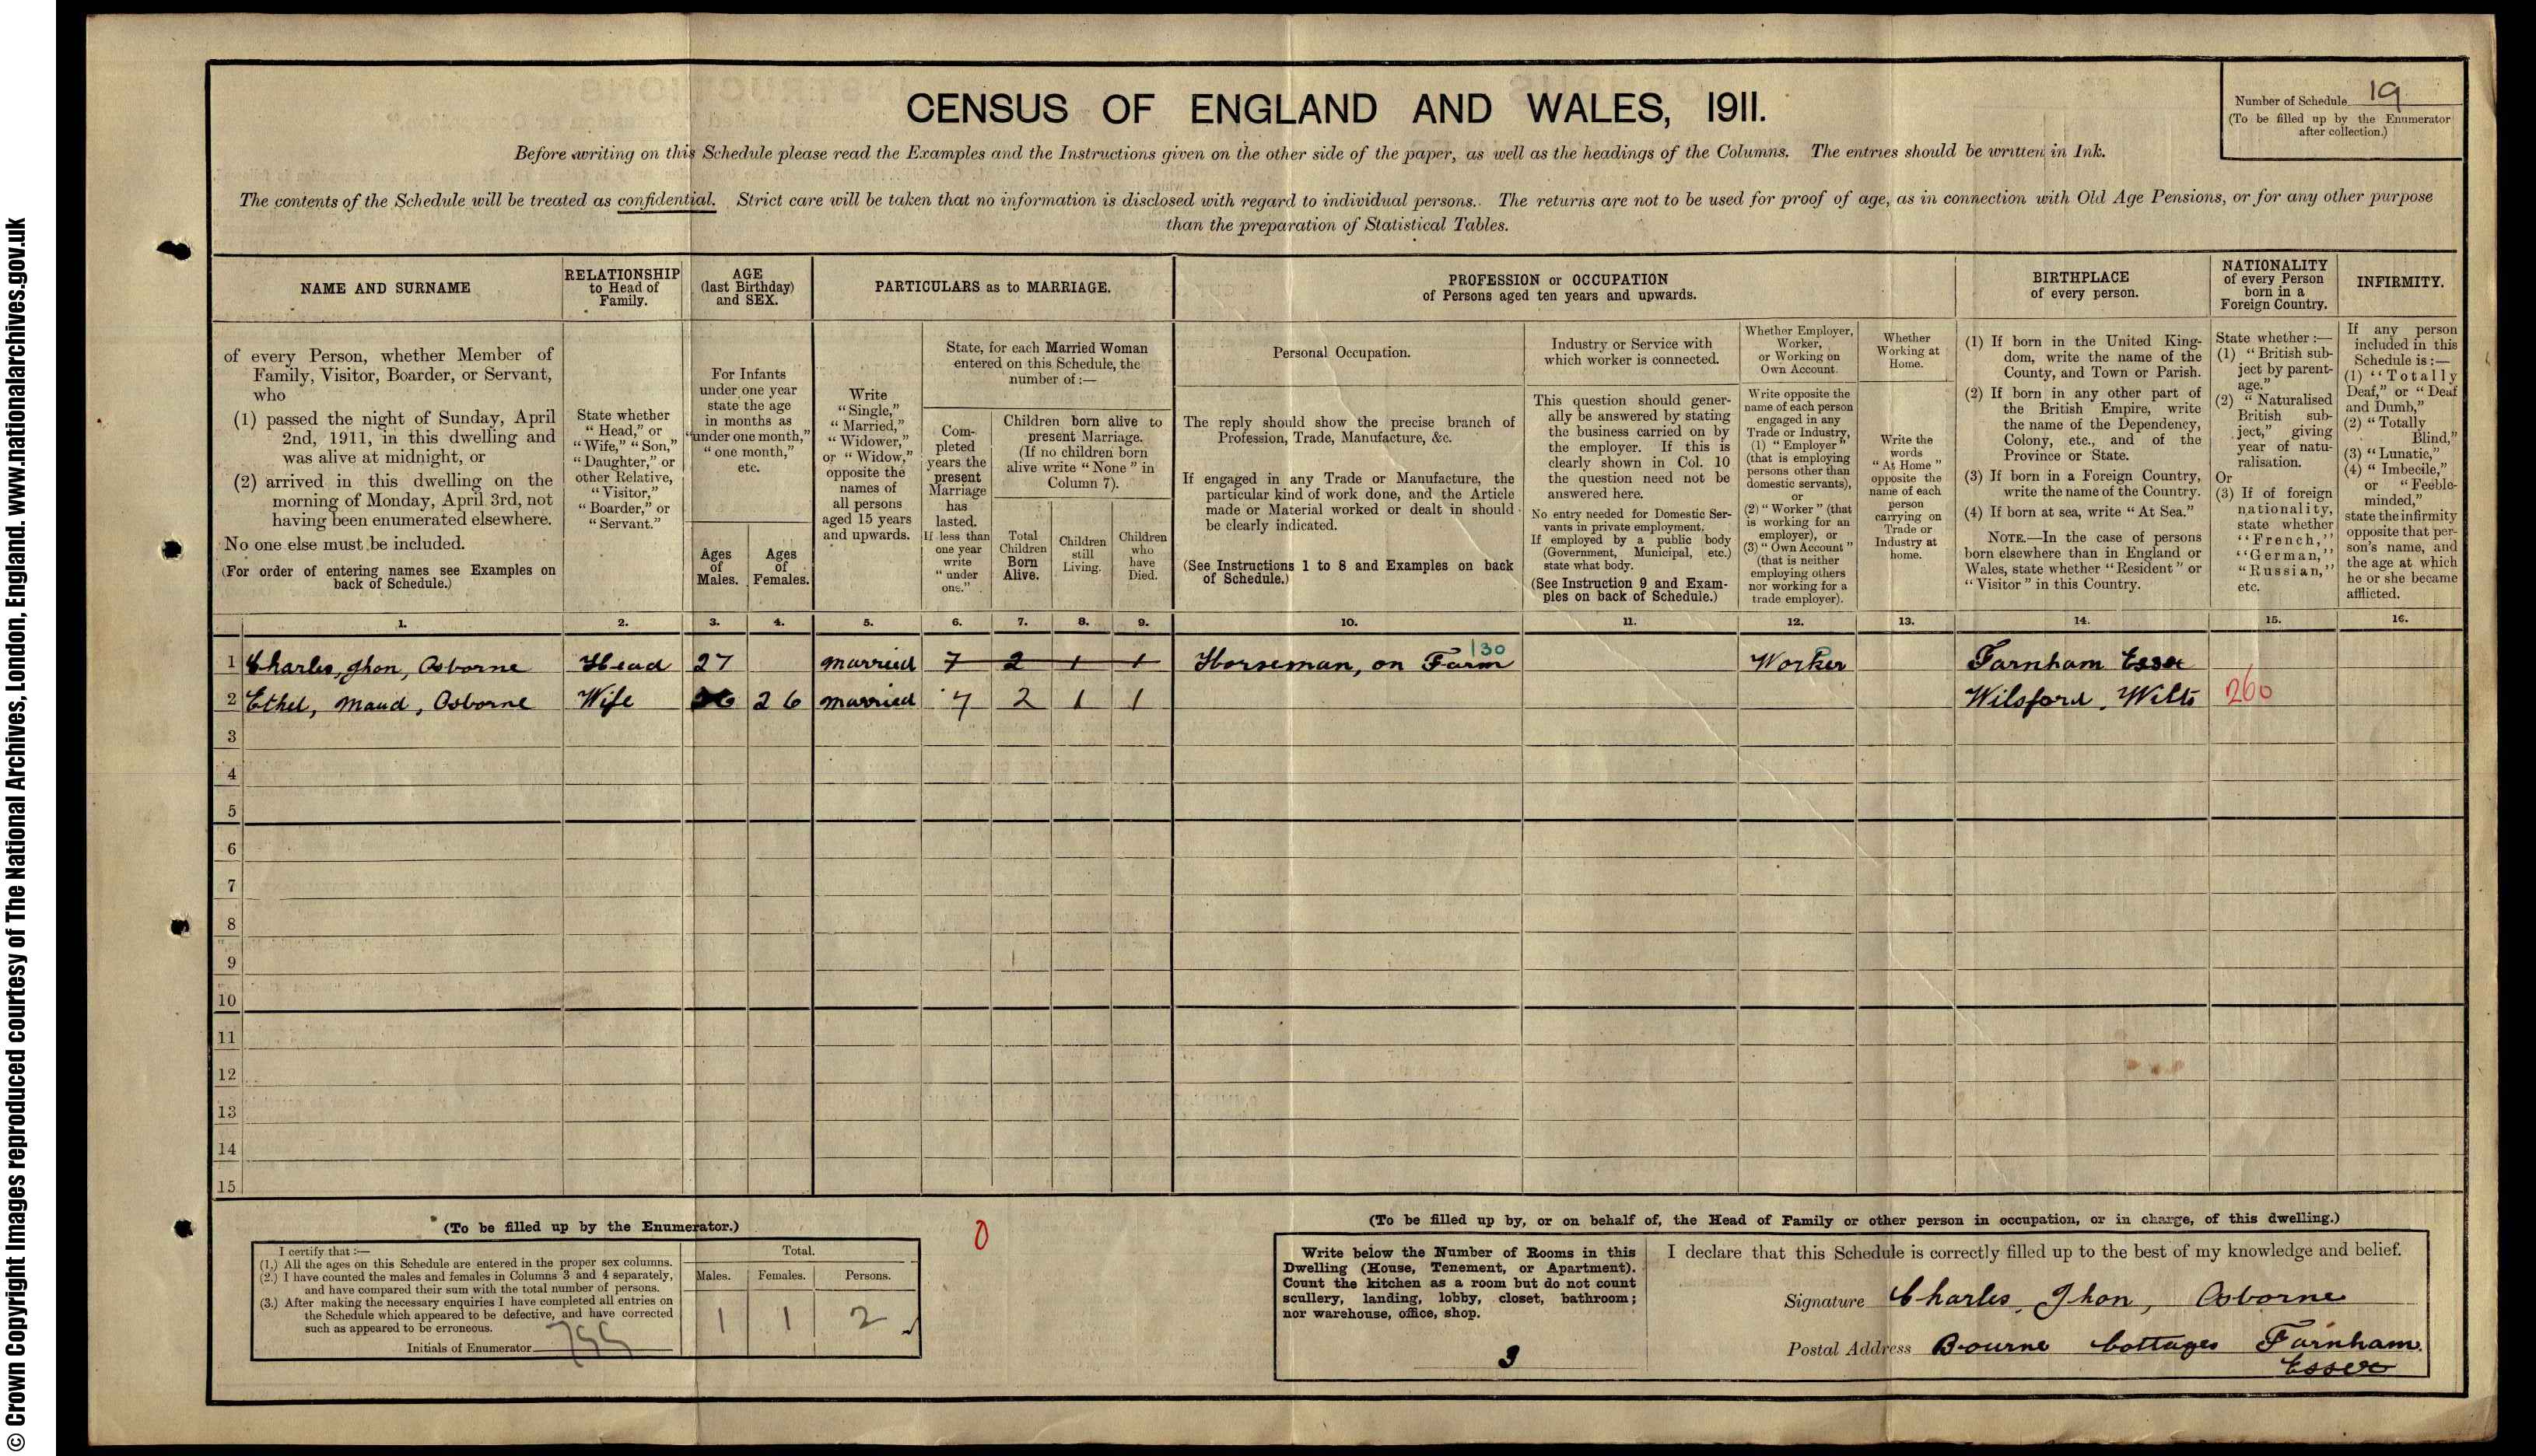 CENSUS OF ENGLAND AND WALES, 1911.
Number of Schedule 19
(To be filled up by the Enumerator
after collection.)
Before writing on this Schedule please read the Examples and the Instructions given on the other side of the paper, as well as the headings of the Columns. The entries should be written in Ink.
The contents of the Schedule will be treated as confidential. Strict care will be taken that no information is disclosed with regard to individual persons. The returns are not to be used for proof of age, as in connection with Old Age Pensions, or for any other purpose
than the preparation of Statistical Tables.
NAME AND SURNAME
of every Person, whether Member of
Family, Visitor, Boarder, or Servant,
who
(1) passed the night of Sunday, April
2nd, 1911, in this dwelling and
was alive at midnight, or
(2) arrived in this dwelling on the
morning of Monday, April 3rd, not
having been enumerated elsewhere.
No one else must be included.
(For order of entering names see Examples on
back of Schedule.)
RELATIONSHIP
to Head of
Family.
State whether
"Head," or
"Wife," "Son,"
"Daughter," or
other Relative,
"Visitor,"
"Boarder," or
"Servant."
AGE
(last Birthday)
and SEX.
For Infants
under one year
state the age
in months as
"under one month,"
"one month,"
etc.
Ages
of
Males.
Ages
of
Females.
PARTICULARS as to MARRIAGE.
Write
"Single,"
"Married,"
"Widower,"
or "Widow,"
opposite the
names of
all persons
aged 15 years
and upwards.
State, for each Married Woman
entered on this Schedule, the
number of :—
Com-
pleted
years the
present
Marriage
has
lasted.
If less than
one year
write
"under
one."
Children born alive to
present Marriage.
(If no children born
alive write "None" in
Column 7).
Total
Children
Born
Alive.
Children
still
Living.
Children
who
have
Died.
PROFESSION or OCCUPATION
of Persons aged ten years and upwards.
Personal Occupation.
The reply should show the precise branch of
Profession, Trade, Manufacture, &c.
If engaged in any Trade or Manufacture, the
particular kind of work done, and the Article
made or Material worked or dealt in should
be clearly indicated.
(See Instructions 1 to 8 and Examples on back
of Schedule.)
Industry or Service with
which worker is connected.
This question should gener-
ally be answered by stating
the business carried on by
the employer. If this is
clearly shown in Col. 10
the question need not be
answered here.
No entry needed for Domestic Ser-
vants in private employment.
If employed by a public body
(Government, Municipal, etc.)
state what body.
(See Instruction 9 and Exam-
ples on back of Schedule.)
Whether Employer,
Worker,
or Working on
Own Account.
Write opposite the
name of each person
engaged in any
Trade or Industry,
(1) "Employer"
(that is employing
persons other than
domestic servants),
or
(2) "Worker" (that
is working for an
employer), or
(3) "Own Account"
(that is neither
employing others
nor working for a
trade employer).
Whether
Working at
Home.
Write the
words
"At Home"
opposite the
name of each
person
carrying on
Trade or
Industry at
home.
BIRTHPLACE
of every person.
(1) If born in the United King-
dom, write the name of the
County, and Town or Parish.
(2) If born in any other part of
the British Empire, write
the name of the Dependency,
Colony, etc., and of the
Province or State.
(3) If born in a Foreign Country,
write the name of the Country.
(4) If born at sea, write "At Sea."
NOTE.—In the case of persons
born elsewhere than in England or
Wales, state whether "Resident" or
"Visitor" in this Country.
NATIONALITY
of every Person
born in a
Foreign Country.
State whether :—
(1) "British sub-
ject by parent-
age."
(2) "Naturalised
British sub-
ject," giving
year of natu-
ralisation.
Or
(3) If of foreign
nationality,
state whether
"French,"
"German,"
"Russian,"
etc.
INFIRMITY.
If any person
included in this
Schedule is :—
(1) "Totally
Deaf," or "Deaf
and Dumb,"
(2) "Totally
Blind,"
(3) "Lunatic,"
(4) "Imbecile,"
or "Feeble-
minded,"
state the infirmity
opposite that per-
son's name, and
the age at which
he or she became
afflicted.
1. 2. 3. 4. 5. 6. 7. 8. 9. 10. 11. 12. 13. 14. 15. 16.
130
1 Charles, Jhon, Osborne Head 27 married 7 2 1 1 Horseman, on Farm Worker Farnham Essex
2 Ethel, Maud, Osborne Wife 26 26 married 7 2 1 1 Wilsford, Wilts 260
3
4
5
6
7
8
9
10
11
12
13
14
15
(To be filled up by the Enumerator.)
I certify that :—
(1.) All the ages on this Schedule are entered in the proper sex columns.
(2.) I have counted the males and females in Columns 3 and 4 separately,
and have compared their sum with the total number of persons.
(3.) After making the necessary enquiries I have completed all entries on
the Schedule which appeared to be defective, and have corrected
such as appeared to be erroneous.
Initials of Enumerator
Total.
Males. Females. Persons.
1 1 2
0
(To be filled up by, or on behalf of, the Head of Family or other person in occupation, or in charge, of this dwelling.)
Write below the Number of Rooms in this
Dwelling (House, Tenement, or Apartment).
Count the kitchen as a room but do not count
scullery, landing, lobby, closet, bathroom;
nor warehouse, office, shop.
3
I declare that this Schedule is correctly filled up to the best of my knowledge and belief.
Signature Charles, Jhon, Osborne
Postal Address Bourne Cottages Farnham
Essex
© Crown Copyright Images reproduced courtesy of The National Archives, London, England. www.nationalarchives.gov.uk